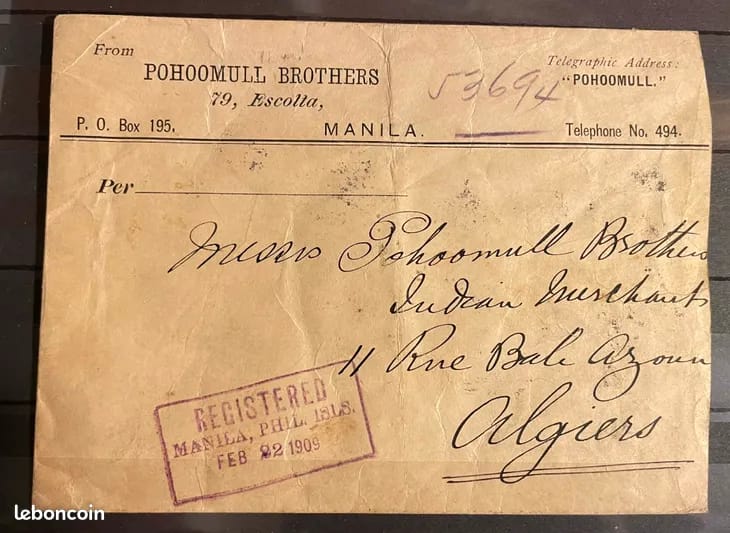 From
POHOOMULL BROTHERS
79, Escolta,
P. O. Box 195.
MANILA.
Telegraphic Address:
"POHOOMULL."
Telephone No. 494.
53694
Per
Messrs Pohoomull Brothers
Indian Merchants
11 Rue Bab Azoun
Algiers
REGISTERED
MANILA, PHIL. ISLS.
FEB 22 1909
leboncoin